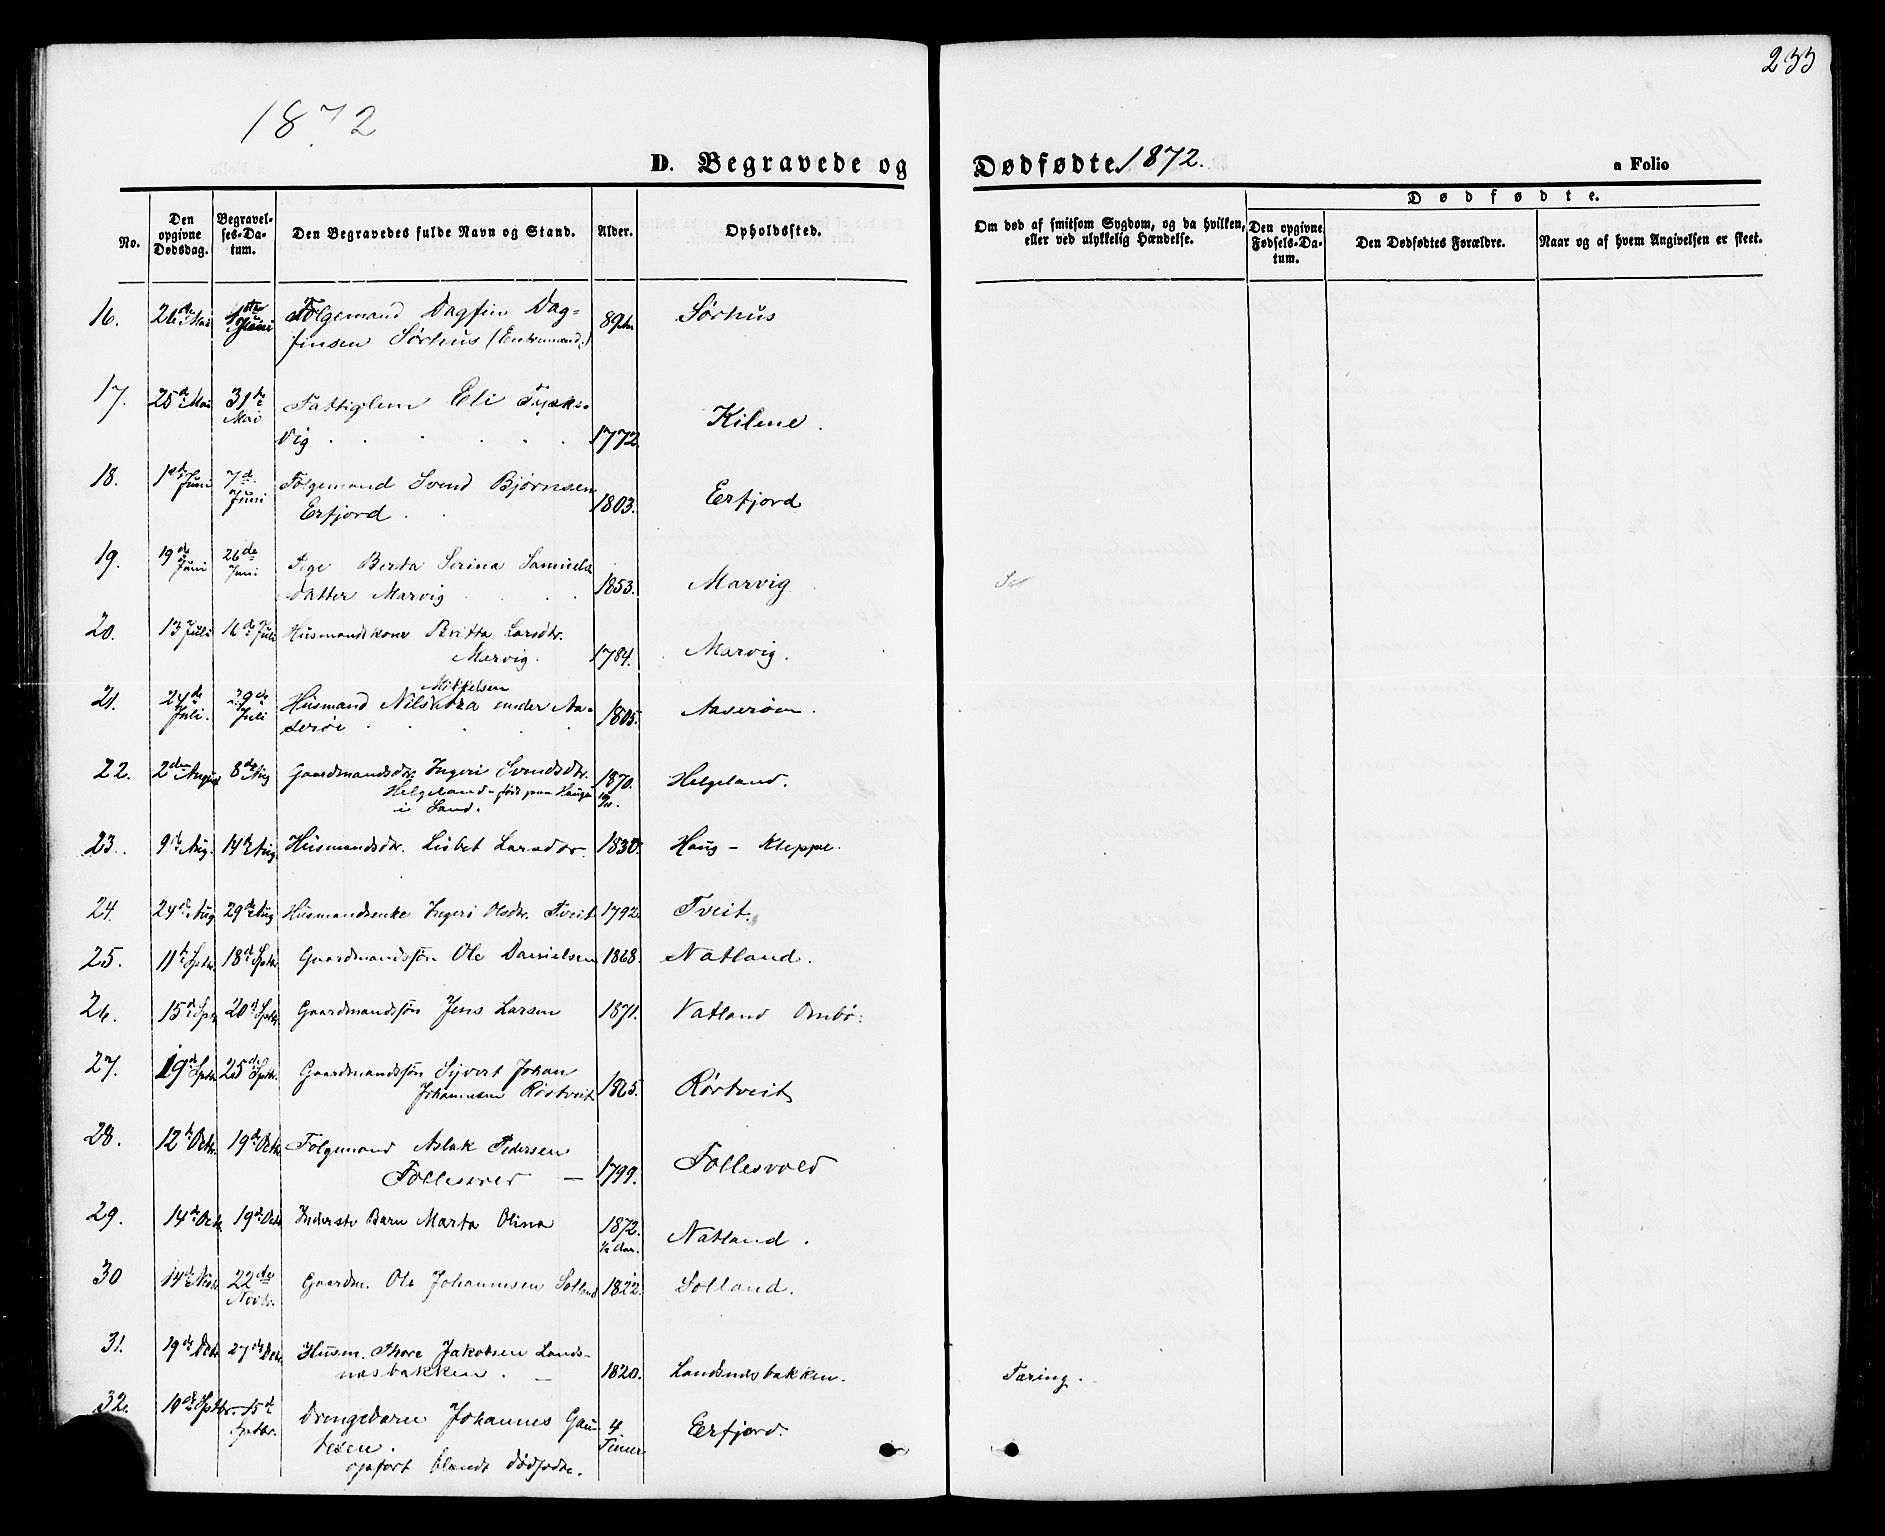 233
1872
D. Begravede og Dødfødte 1872.
a Folio
No.
Den opgivne Dødsdag.
Begravelses-Datum.
Den Begravedes fulde Navn og Stand.
Alder.
Opholdssted.
Om død af smitsom Sygdom, og da hvilken, eller ved ulykkelig Hændelse.
Dødfødte.
Den opgivne Fødsels-Datum.
Den Dødfødtes Forældre.
Naar og af hvem Angivelsen er skeet.
16. 26de Mai Juni Folgemand Dagfin Dag- 89 Sørhus
finsen Sørhus (Enkemand.)
17. 25de Mai 31te Mai Fattiglem Eli
vig 1772. Kilene.
18. 1ste Juni 7de Juni Folgemand Svend Bjørnsen
Erfjord 1803. Erfjord
19. 19de Juni 26de Juni Pige Berta Serina Samuels
datter Marvig 1853. Marvig
20. 13 Juli 16de Juli Husmandskone Britta Larsdtr.
Marvig. 1784. Marvig.
21. 24de Juli. 29de Juli Husmand Nils Mikkelsen under Aa-
serøe 1805. Aaserøen.
22. 2den August 8de Aug Gaardmandsdtr. Ingeri Svendsdtr. 1870. Helgeland.
Helgeland - født paa Hauge
i Sand.
23. 9de Aug. 14de Aug Husmandsdtr. Lisbet Larsdtr. 1830. Haug - Kleppe.
24. 24de Aug 29de Aug Husmandsenke Ingeri Olsdtr. Tveit 1792. Tveit.
25. 11te Sptbr. 18de Sptbr Gaardmandssøn Ole Danielsen 1868. Natland.
26. 15de Sptbr 20de Sptbr. Gaardmandssøn Jens Larsen 1871. Natland Ombø.
27. 19de Sptbr. 25de Sptbr. Gaardmandssøn Sjvert Johan
Johannesen Rørtveit 1865. Rørtveit
28. 12te Octbr. 19de Octbr Folgemand Aslak Pedersen
Follesvold — 1799. Follesvold
29. 14de Octbr. 19de Octbr Inderste Barn Marta Olina 1872. ½ Aar. Natland.
30 14de Novbr. 22de Novbr. Gaardm. Ole Johannesen Solland 1822. Solland.
31. 19de Decbr 27de Decbr Husm. Thore Jakobsen Lands-
næsbakken. — 1820. Landsnæsbakken. Tæring.
32. 10de Sptbr. 15de Sptbr. Drengebarn Johannes Gau-
tesen. 4 Timer Erfjord.
opført blandt dødfødte.